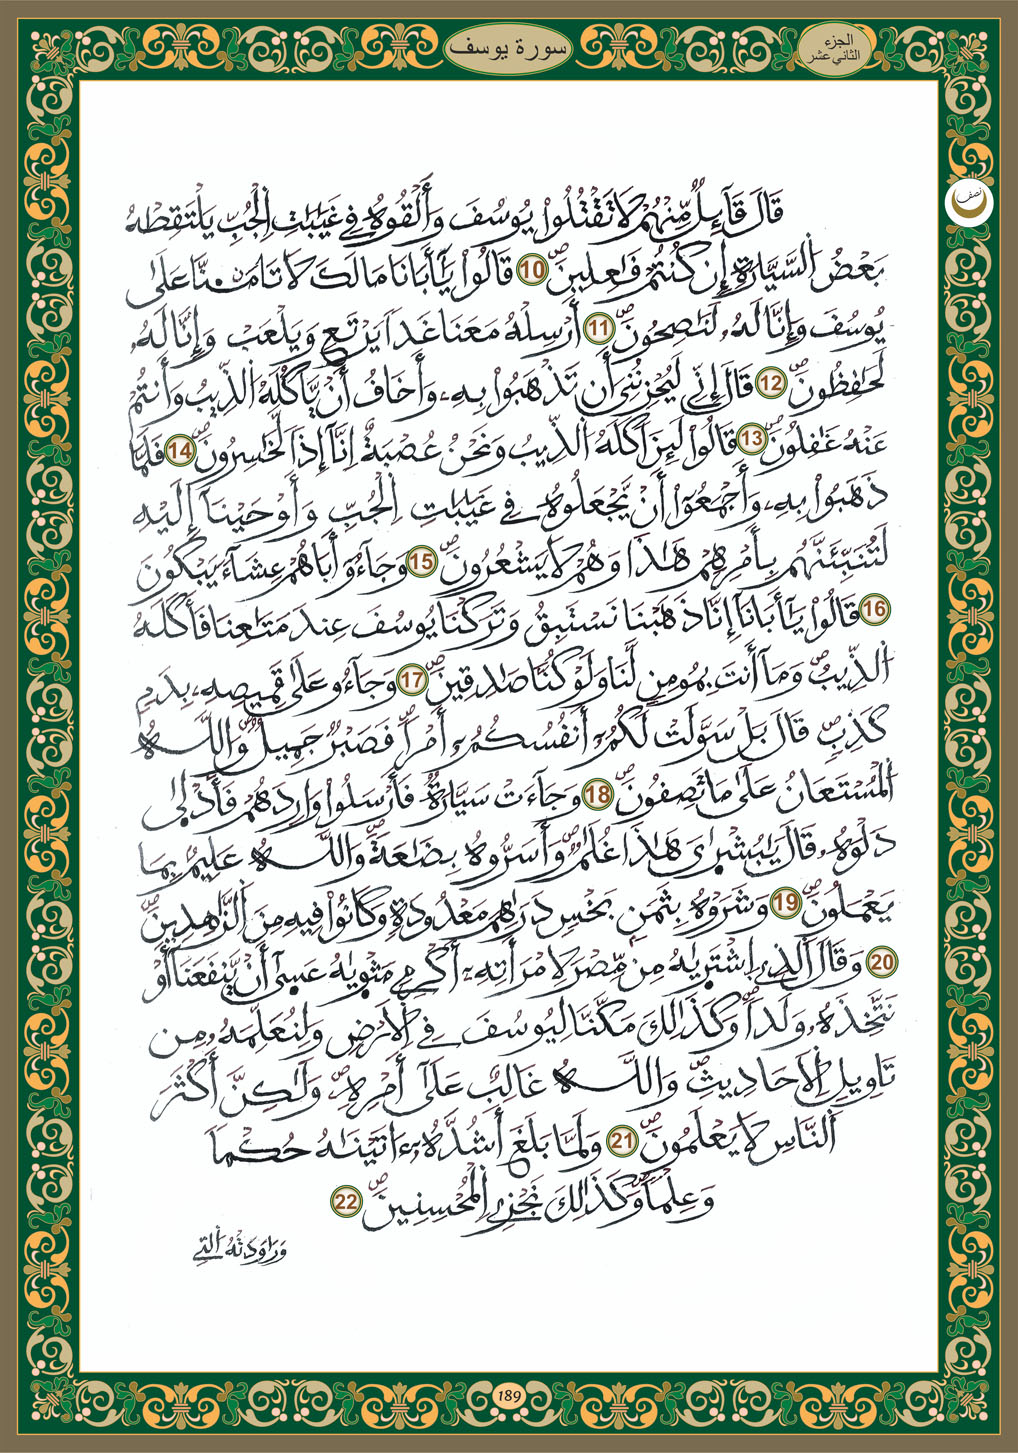 سورة يوسف
الجزء
الثاني عشر
نصف
قَالَ قَآئِلٌ مِّنْهُمْ لَا تَقْتُلُوا يُوسُفَ وَأَلْقُوهُ فِے غَيَٰبَٰتِ اِلْجُبِّ يَلْتَقِطْهُ
بَعْضُ اُلسَّيَّارَةِ إِن كُنتُمْ فَٰعِلِينَ ص 10 قَالُوا يَٰٓأَبَانَا مَا لَكَ لَا تَامَ۬نَّا عَلَىٰ
يُوسُفَ وَإِنَّا لَهُۥ لَنَٰصِحُونَ ص 11 أَرْسِلْهُ مَعَنَا غَداً يَرْتَعِ وَيَلْعَبْ وَإِنَّا لَهُۥ
لَحَٰفِظُونَ ص 12 قَالَ إِنِّے لَيُحْزِنُنِيَ أَن تَذْهَبُوا بِهِۦ وَأَخَافُ أَنْ يَّاكُلَهُ اُلذِّيبُ وَأَنتُمْ
عَنْهُ غَٰفِلُونَ ص 13 قَالُوا لَئِنَ اَكَلَهُ اُلذِّيبُ وَنَحْنُ عُصْبَةٌ اِنَّآ إِذاً لَّخَٰسِرُونَ ص 14 فَلَمَّا
ذَهَبُوا بِهِۦ وَأَجْمَعُوٓا أَنْ يَّجْعَلُوهُ فِے غَيَٰبَٰتِ اِلْجُبِّ وَأَوْحَيْنَآ إِلَيْهِ
لَتُنَبِّئَنَّهُم بِأَمْرِهِمْ هَٰذَا وَهُمْ لَا يَشْعُرُونَ ص 15 وَجَآءُوٓ أَبَاهُمْ عِشَآءً يَبْكُونَ
16 قَالُوا يَٰٓأَبَانَآ إِنَّا ذَهَبْنَا نَسْتَبِقُ وَتَرَكْنَا يُوسُفَ عِندَ مَتَٰعِنَا فَأَكَلَهُ
اُلذِّيبُ ص وَمَآ أَنتَ بِمُومِنٍ لَّنَا وَلَوْ كُنَّا صَٰدِقِينَ ص 17 وَجَآءُو عَلَىٰ قَمِيصِهِۦ بِدَمٍ
كَذِبٍ ص قَالَ بَلْ سَوَّلَتْ لَكُمُۥٓ أَنفُسُكُمُۥٓ أَمْراً ص فَصَبْرٌ جَمِيلٌ ص وَاللَّهُ
اُلْمُسْتَعَانُ عَلَىٰ مَا تَصِفُونَ ص 18 وَجَآءَتْ سَيَّارَةٌ فَأَرْسَلُوا وَارِدَهُمْ فَأَدْلَىٰ
دَلْوَهُۥ قَالَ يَٰبُشْرَٰىَ هَٰذَا غُلَٰمٌ ص وَأَسَرُّوهُ بِضَٰعَةً ص وَاللَّهُ عَلِيمٌ بِمَا
يَعْمَلُونَ ص 19 وَشَرَوْهُ بِثَمَنٍ بَخْسٍ دَرَٰهِمَ مَعْدُودَةٍ وَكَانُوا فِيهِ مِنَ اَلزَّٰهِدِينَ ص
20 وَقَالَ اَلذِے اِشْتَر۪يٰهُ مِن مِّصْرَ لِامْرَأَتِهِۦٓ أَكْرِمِے مَثْو۪يٰهُ عَس۪ىٰٓ أَنْ يَّنفَعَنَآ أَوْ
نَتَّخِذَهُۥ وَلَداً ص وَكَذَٰلِكَ مَكَّنَّا لِيُوسُفَ فِے اِلَارْضِ وَلِنُعَلِّمَهُۥ مِن
تَاوِيلِ اِلَاحَادِيثِ ص وَاللَّهُ غَالِبٌ عَلَىٰٓ أَمْرِهِۦ ص وَلَٰكِنَّ أَكْثَرَ
اَلنَّاسِ لَا يَعْلَمُونَ ص 21 وَلَمَّا بَلَغَ أَشُدَّهُۥٓ ءَاتَيْنَٰهُ حُكْماً
وَعِلْماً ص وَكَذَٰلِكَ نَجْزِے اِلْمُحْسِنِينَ ص 22
وَرَٰوَدَتْهُ اُلتِے
189